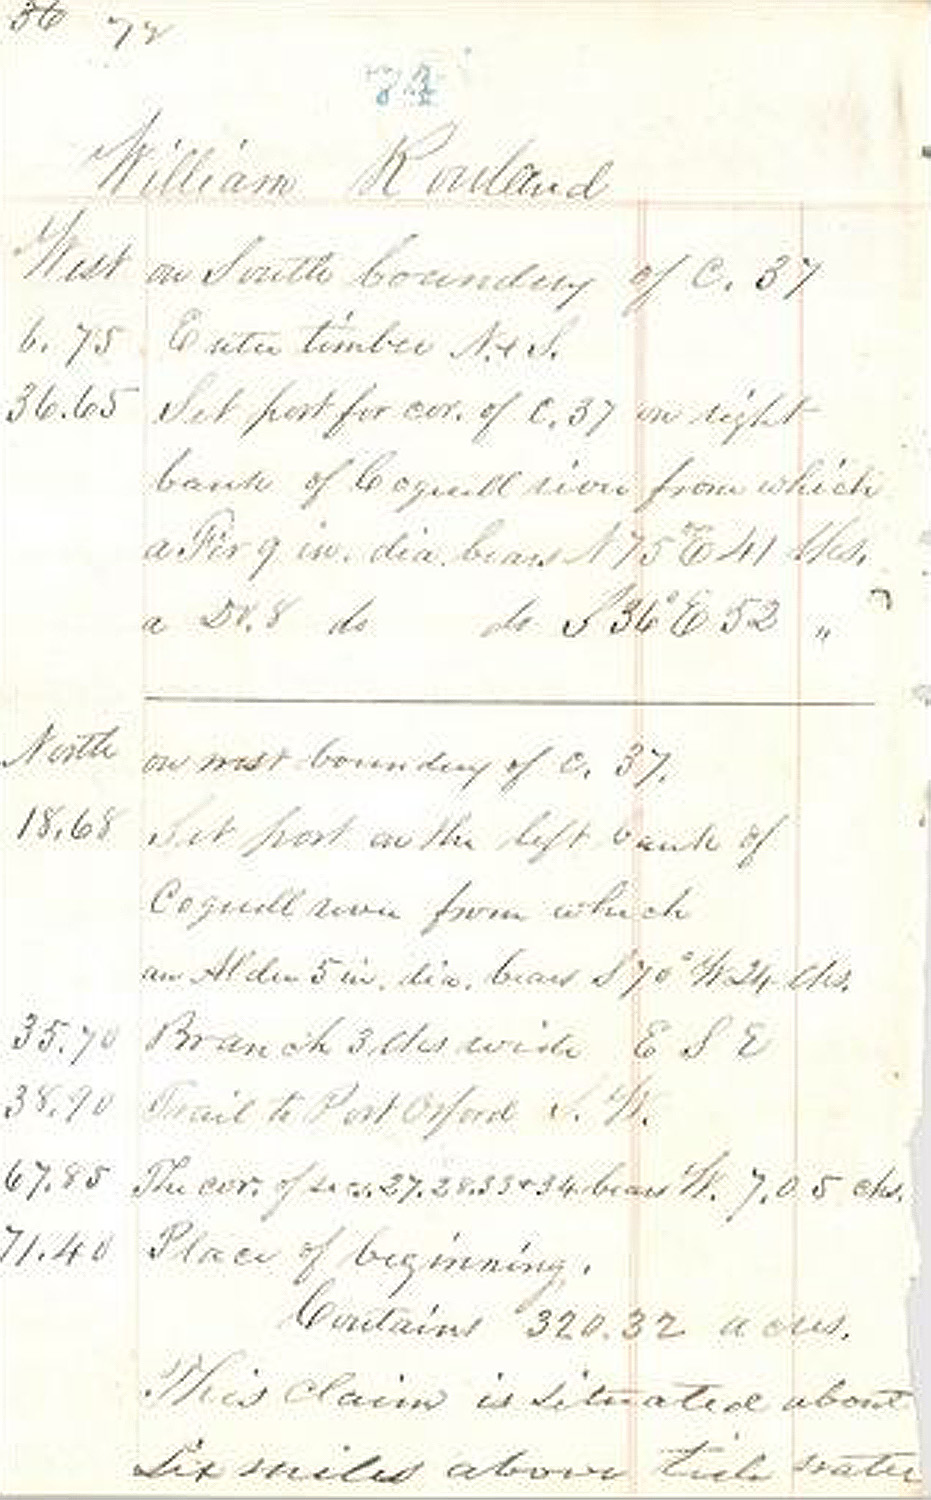 36 72
William Rowland
West on South boundery of C. 37
6.75 Enter timber N. & S.
36.65 Set post for cor. of C. 37 on right
bank of Coquill river from which
a Fir 9 in. dia. bears N 75° E 41 lks.
a do. 8 do do S 36° E 52 "
North on west boundery of C. 37.
18.68 Set post on the left bank of
Coquill river from which
an Alder 5 in. dia. bears S 70° W 24 lks.
35.70 Branch 3 lks wide E S E
38.90 Trail to Port Orford S. W.
67.85 The cor. of secs. 27. 28. 33 & 34 bears W. 7.05 chs.
71.40 Place of beginning.
Contains 320.32 acres.
This claim is situated about
Six miles above tide water